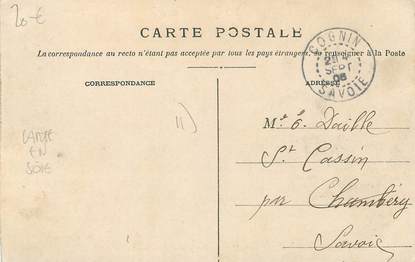 20 €
CARTE POSTALE
La correspondance au recto n'étant pas acceptée par tous les pays étrangers, se renseigner à la Poste
COGNIN
SEPT
06
SAVOIE
CORRESPONDANCE
ADRESSE
11)
CARTE
EN
SOIE
Mr é. Daille
St Cassin
par Chambéry
Savoie